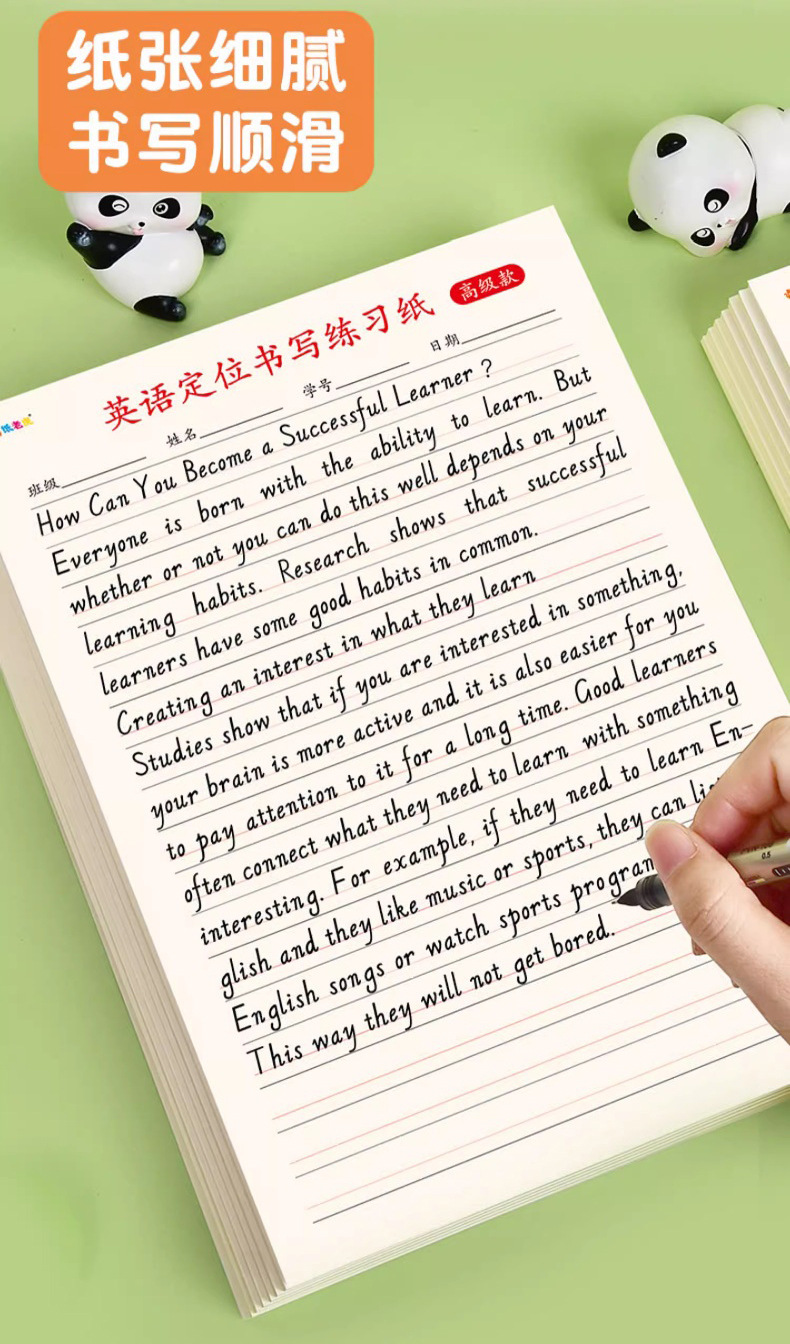 纸张细腻
书写顺滑
英语定位书写练习纸 高级款
班级 姓名 学号 日期
How Can You Become a Successful Learner ?
Everyone is born with the ability to learn. But
whether or not you can do this well depends on your
learning habits. Research shows that successful
learners have some good habits in common.
Creating an interest in what they learn
Studies show that if you are interested in something,
your brain is more active and it is also easier for you
to pay attention to it for a long time. Good learners
often connect what they need to learn with something
interesting. For example, if they need to learn En-
glish and they like music or sports, they can
English songs or watch sports
This way they will not get bored.
0.5